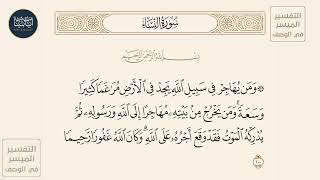 التفسير
الميسر
في الوصف
سُورَةُ النِّسَاءِ
بِسْمِ اللَّهِ الرَّحْمَٰنِ الرَّحِيمِ
۞ وَمَن يُهَاجِرْ فِي سَبِيلِ اللَّهِ يَجِدْ فِي الْأَرْضِ مُرَاغَمًا كَثِيرًا
وَسَعَةً ۚ وَمَن يَخْرُجْ مِنْ بَيْتِهِ مُهَاجِرًا إِلَى اللَّهِ وَرَسُولِهِ ثُمَّ
يُدْرِكْهُ الْمَوْتُ فَقَدْ وَقَعَ أَجْرُهُ عَلَى اللَّهِ ۗ وَكَانَ اللَّهُ غَفُورًا رَّحِيمًا
١٠٠
التفسير
الميسر
في الوصف